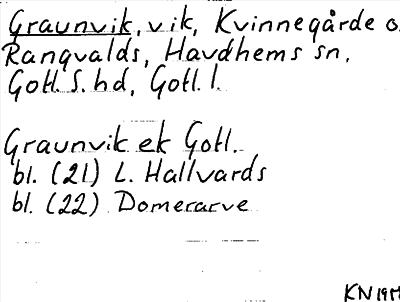 Graunvik, vik, Kvinnegårde o.
Ranqvalds, Havdhems sn,
Gotl. S. hd, Gotl. l.
Graunvik ek Gotl.
bl. (21) L. Hallvards
bl. (22) Domerarve